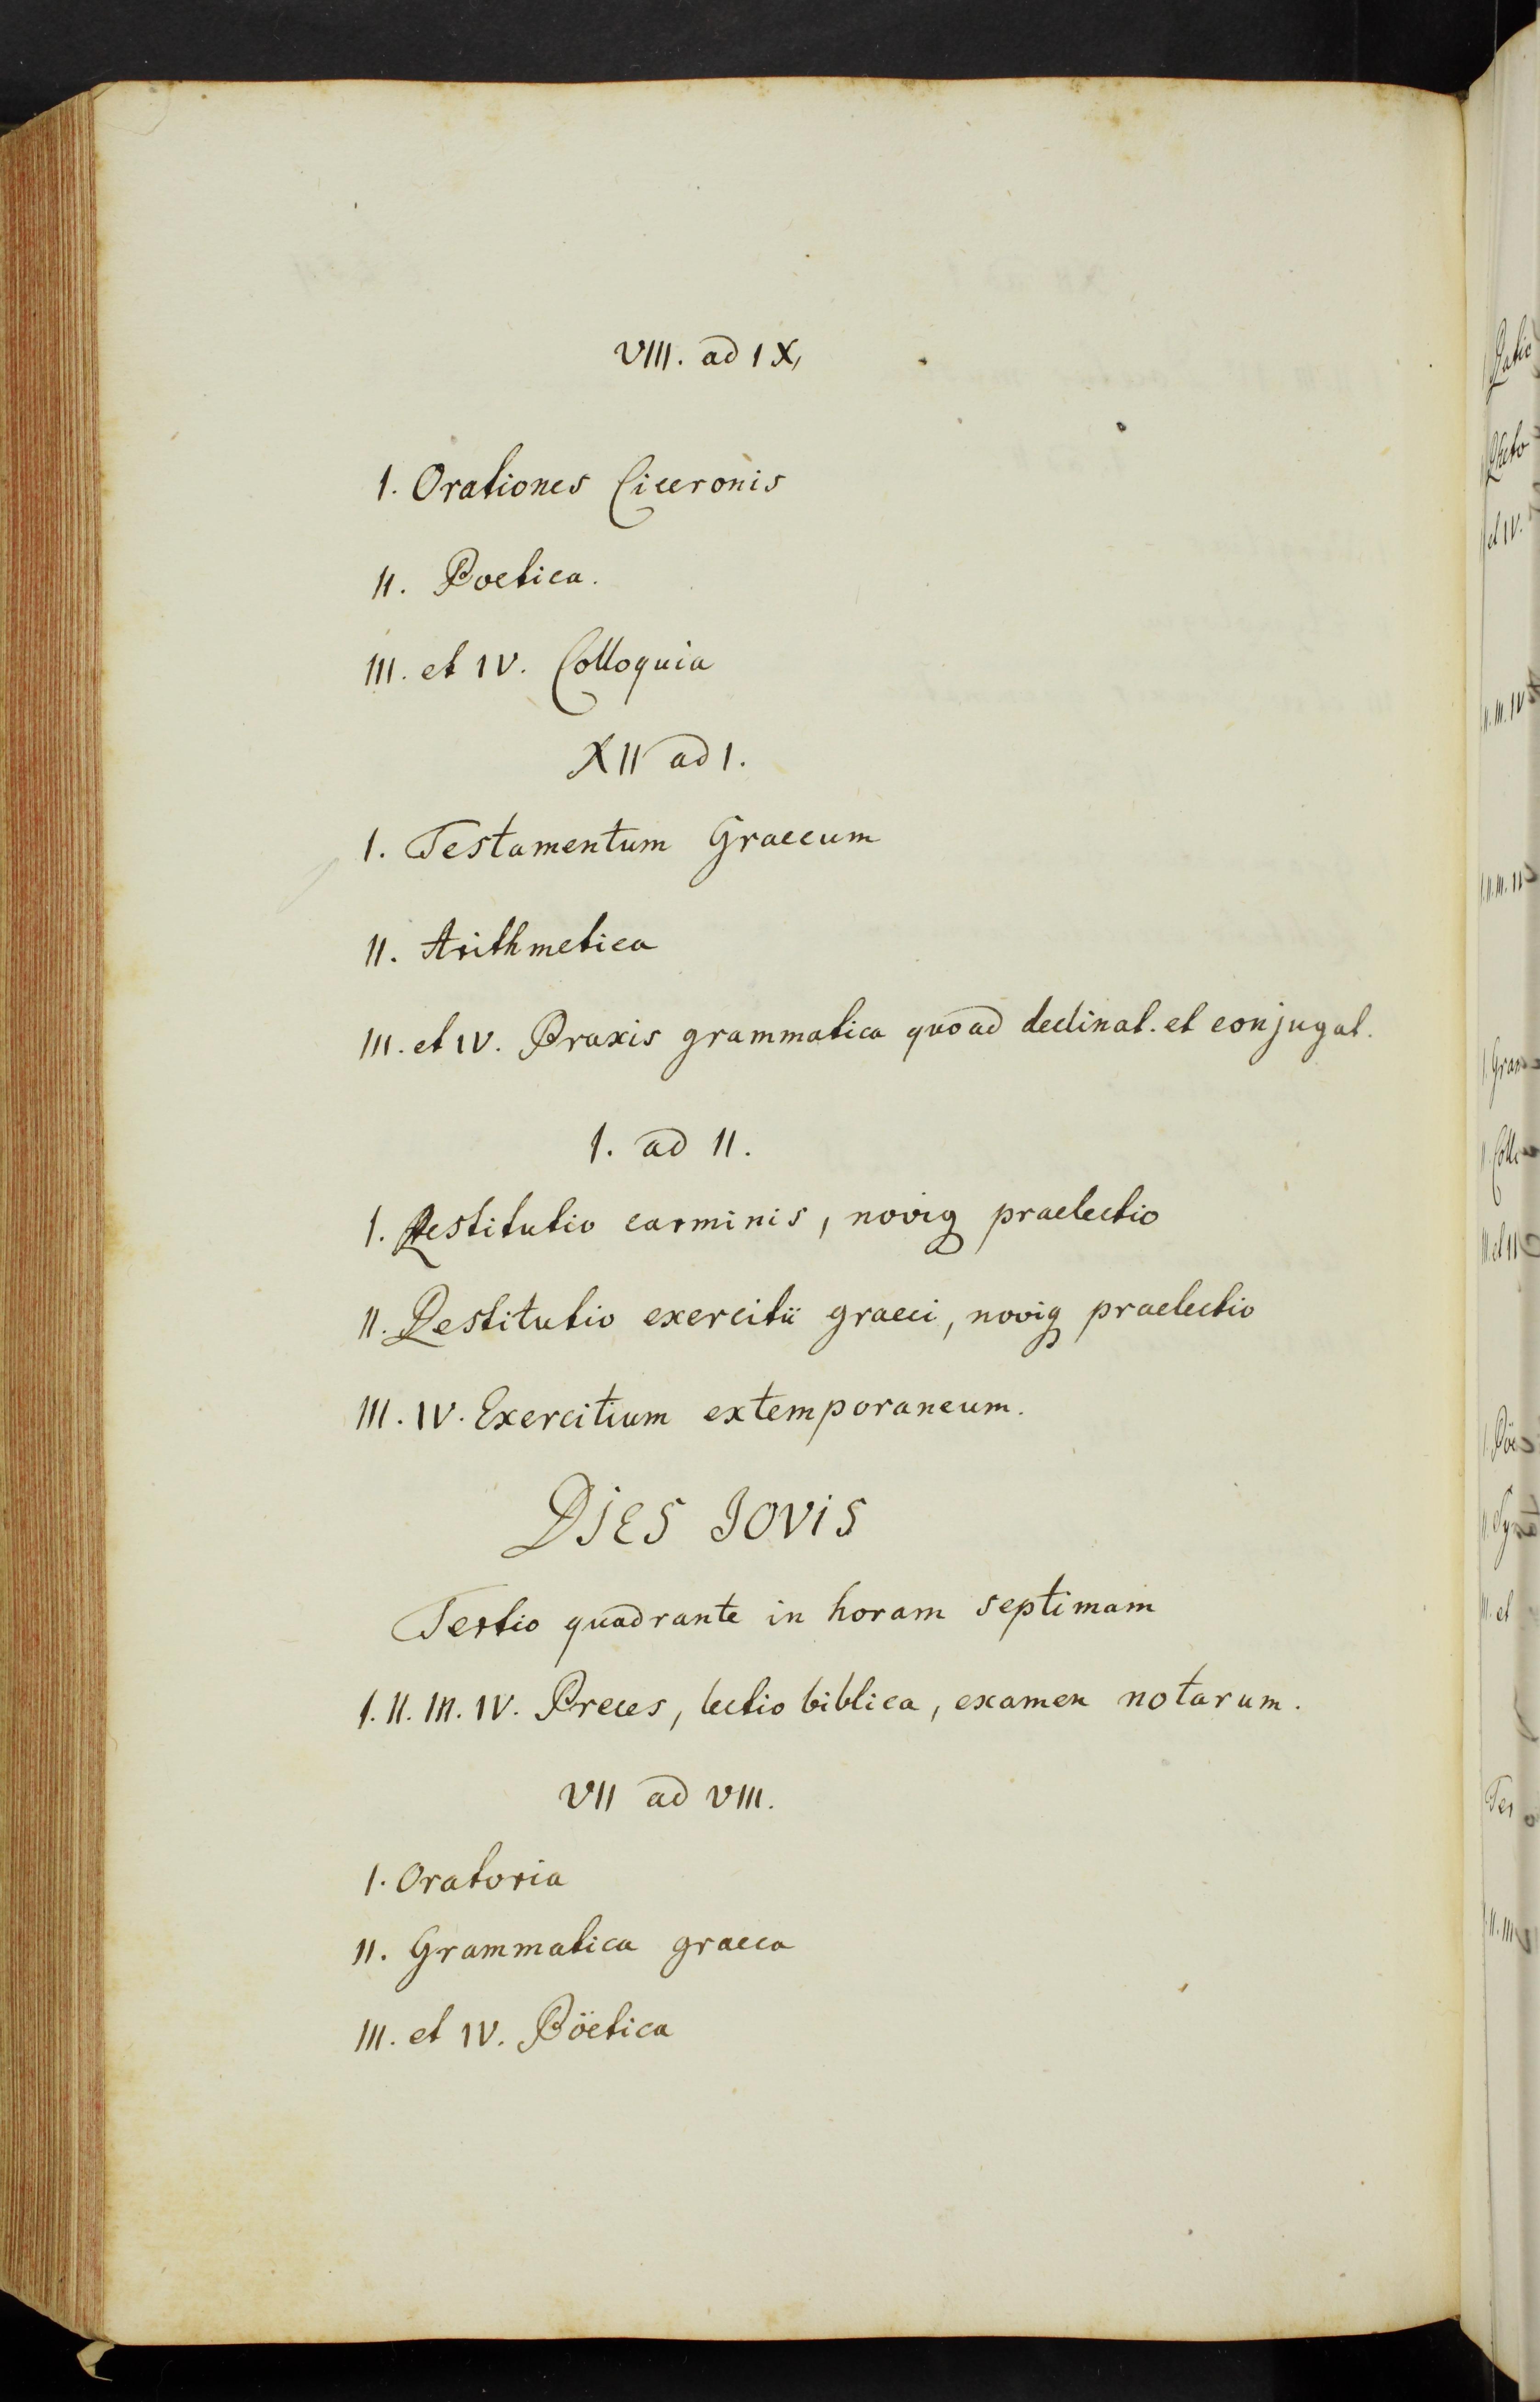 VIII. ad IX,
I. Orationes Ciceronis
II. Poetica.
III. et IV. Colloquia
XII ad I.
I. Testamentum Graecum
II. Arithmetica
III. et IV. Praxis grammatica quoad declinat. et conjugat.
I. ad II.
I. Restitutio carminis, noviq praelectio
II. Restitutio exercitii graeci, noviq praelectio
III. IV. Exercitium extemporaneum.
DIES JOVIS
Tertio quadrante in horam septimam
I. II. III. IV. Preces, lectio biblica, examen notarum.
VII ad VIII.
I. Oratoria
II. Grammatica graeca
III. et IV. Pöetica